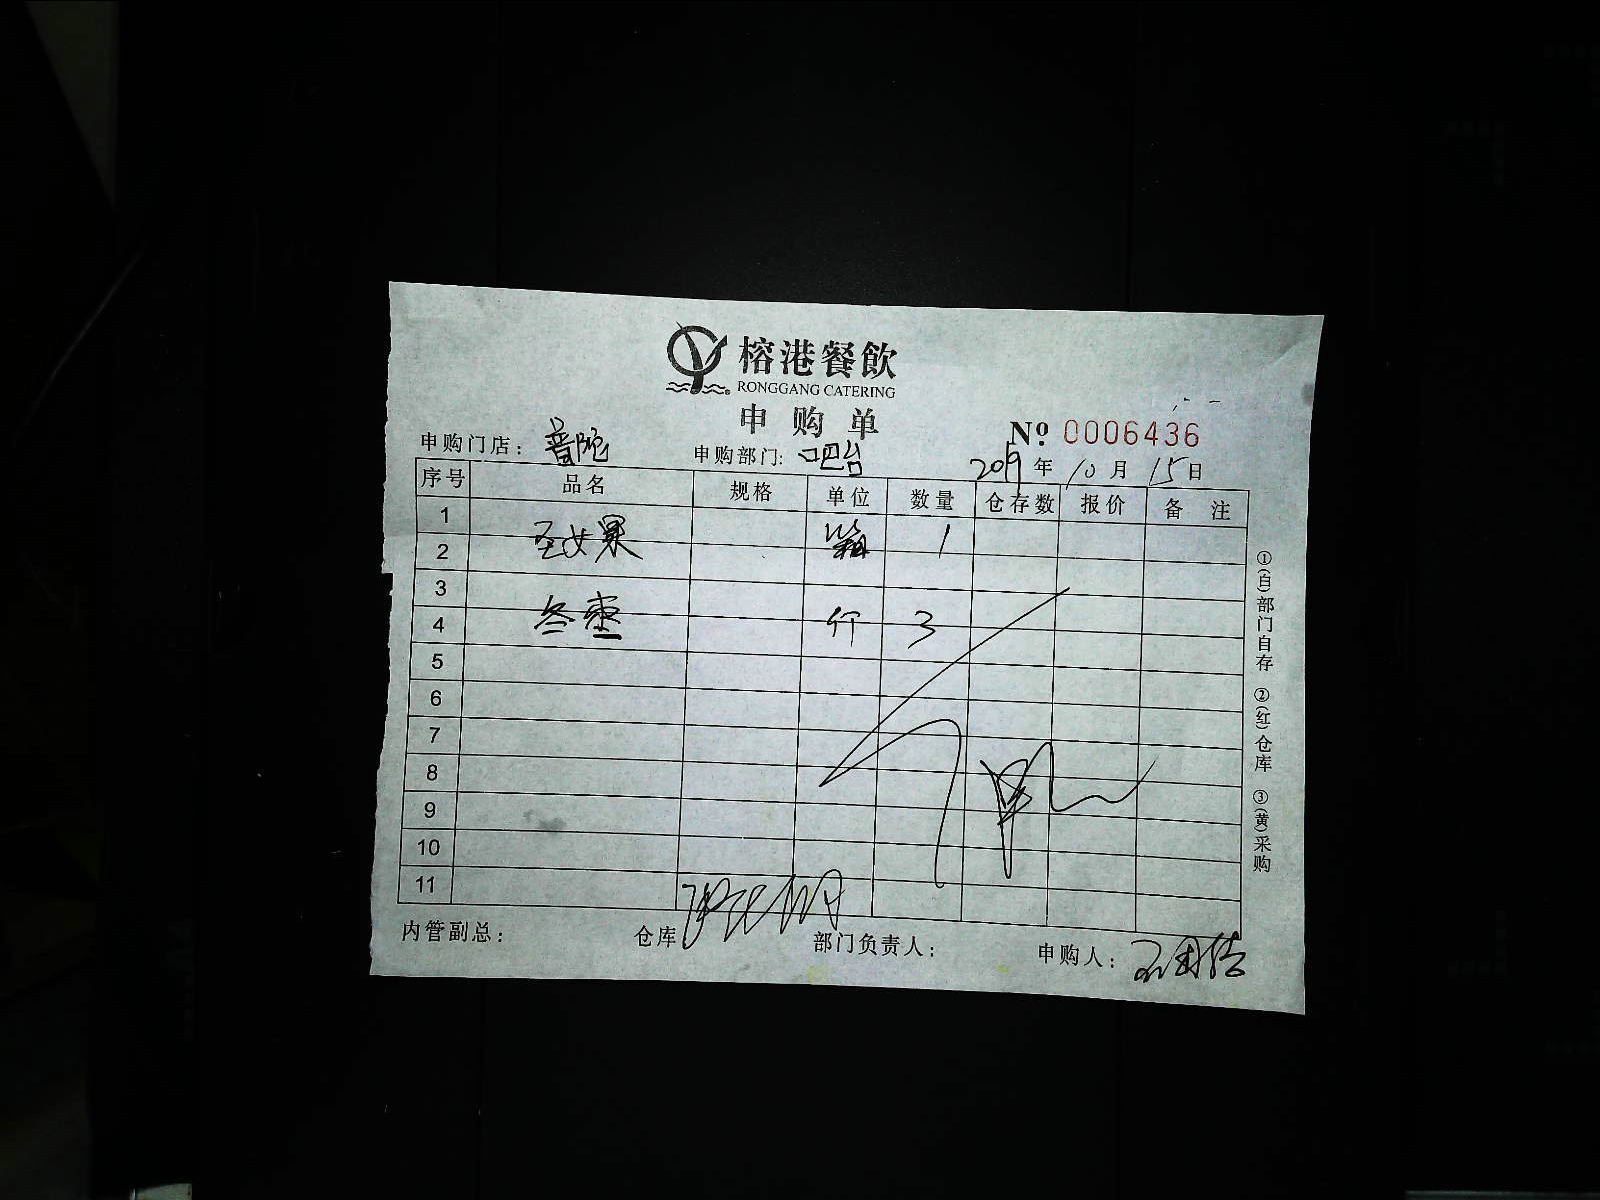 榕港餐飲
RONGGANG CATERING
申购单
№ 0006436
申购门店： 普陀 申购部门: 吧台 2019 年 10 月 15 日
序号 品名 规格 单位 数量 仓存数 报价 备 注
1
2 圣女果 箱 1
3
4 冬枣 斤 3
5
6
7
8
9
10
11
内管副总： 仓库 部门负责人： 申购人：
①(白)部门自存 ②(红)仓库 ③(黄)采购